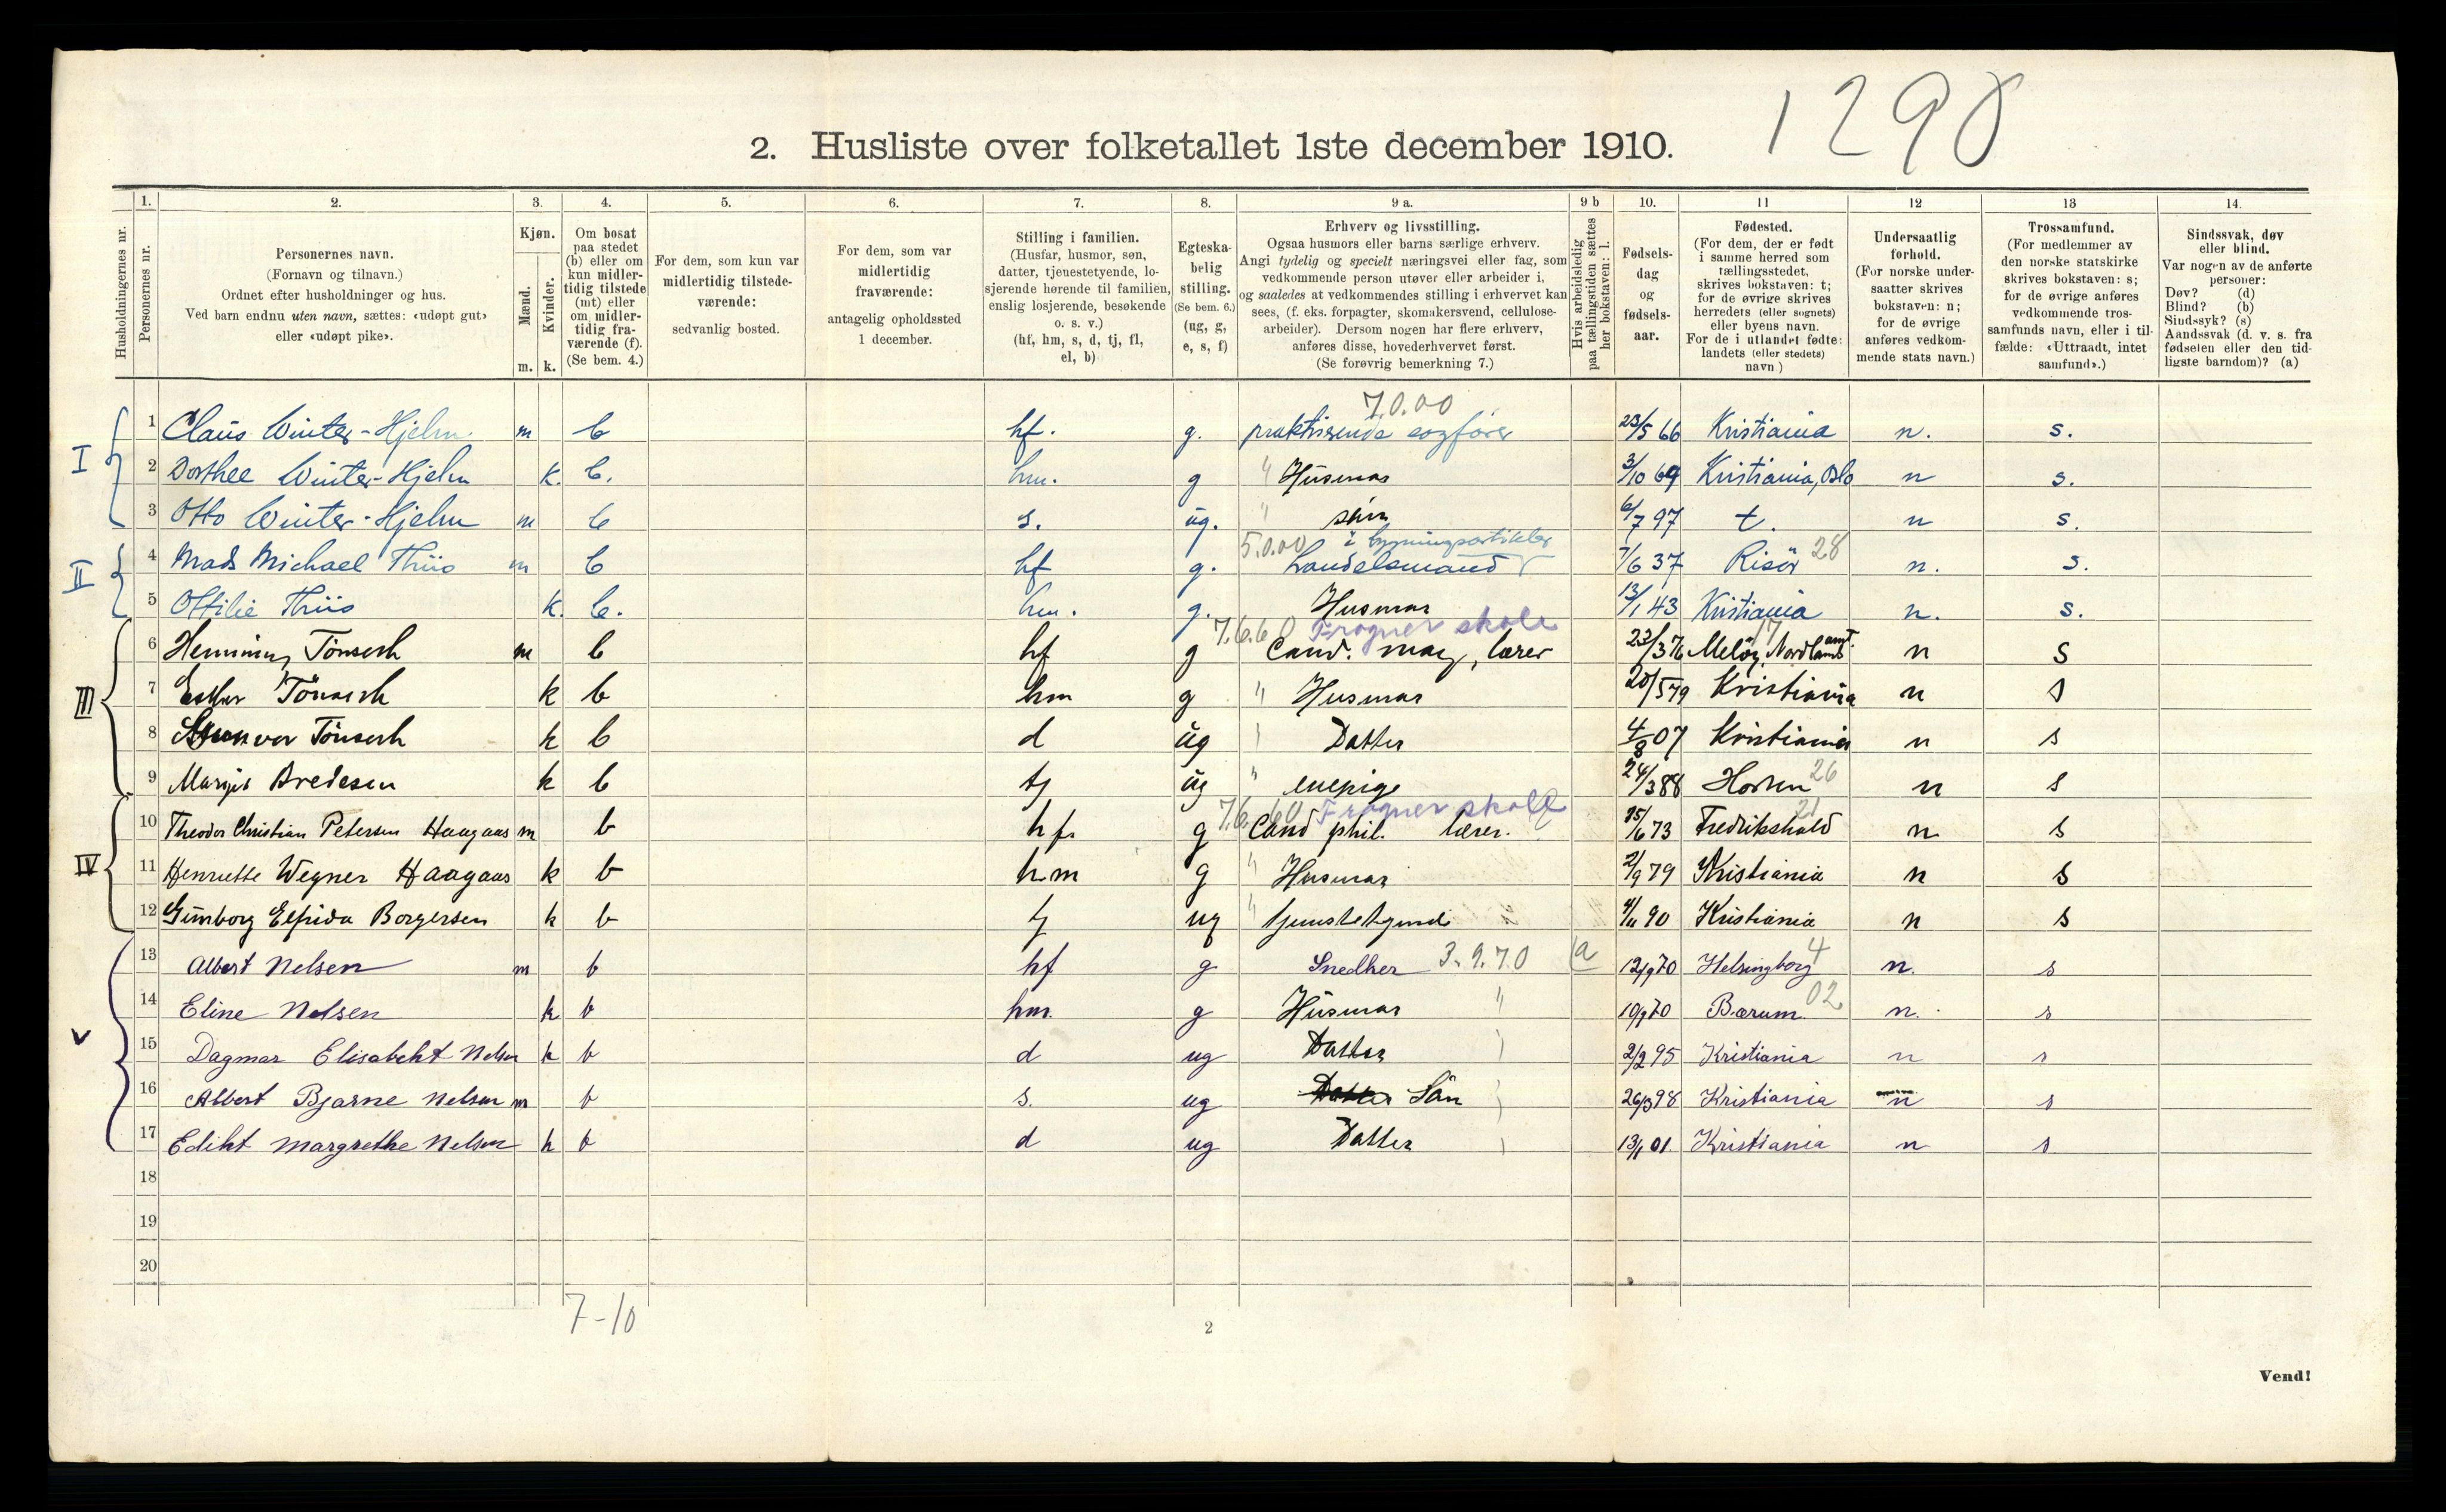 1290
2. Husliste over folketallet 1ste december 1910.
Husholdningernes nr.
1.
Personernes nr.
2.
Personernes navn.
(Fornavn og tilnavn.)
Ordnet efter husholdninger og hus.
Ved barn endnu uten navn, sættes: «udøpt gut»
eller «udøpt pike».
3.
Kjøn.
Mænd.
Kvinder.
m. k.
4.
Om bosat
paa stedet
(b) eller om
kun midler-
tidig tilstede
(mt) eller
om midler-
tidig fra-
værende (f).
(Se bem. 4.)
5.
For dem, som kun var
midlertidig tilstede-
værende:
sedvanlig bosted.
6.
For dem, som var
midlertidig
fraværende:
antagelig opholdssted
1 december.
7.
Stilling i familien.
(Husfar, husmor, søn,
datter, tjenestetyende, lo-
sjerende hørende til familien,
enslig losjerende, besøkende
o. s. v.)
(hf, hm, s, d, tj, fl,
el, b)
8.
Egteska-
belig
stilling.
(Se bem. 6.)
(ug, g,
e, s, f)
9 a.
Erhverv og livsstilling.
Ogsaa husmors eller barns særlige erhverv.
Angi tydelig og specielt næringsvei eller fag, som
vedkommende person utøver eller arbeider i,
og saaledes at vedkommendes stilling i erhvervet kan
sees, (f. eks. forpagter, skomakersvend, cellulose-
arbeider). Dersom nogen har flere erhverv,
anføres disse, hovederhvervet først.
(Se forøvrig bemerkning 7.)
9 b
Hvis arbeidsledig
paa tællingstiden sættes
her bokstaven: l.
10.
Fødsels-
dag
og
fødsels-
aar.
11
Fødested.
(For dem, der er født
i samme herred som
tællingsstedet,
skrives bokstaven: t;
for de øvrige skrives
herredets (eller sognets)
eller byens navn.
For de i utlandet fødte:
landets (eller stedets)
navn.)
12
Undersaatlig
forhold.
(For norske under-
saatter skrives
bokstaven: n;
for de øvrige
anføres vedkom-
mende stats navn.)
13
Trossamfund.
(For medlemmer av
den norske statskirke
skrives bokstaven: s;
for de øvrige anføres
vedkommende tros-
samfunds navn, eller i til-
fælde: «Uttraadt, intet
samfund».)
14.
Sindssvak, døv
eller blind.
Var nogen av de anførte
personer:
Døv? (d)
Blind? (b)
Sindssyk? (s)
Aandssvak (d. v. s. fra
fødselen eller den tid-
ligste barndom)? (a)
7.0.00
I 1 Claus Winter-Hjelm m b hf. g. praktiserende sagfører 23/5 66 Kristiania n. s.
2 Dorthee Winter-Hjelm k. b. hm. g " Husmor 3/10 69 Kristiania, Oslo n s.
3 Otto Winter-Hjelm m b s. ug. " søn 6/7 97 t. n s.
5.0.00 i bygningsartikler
II 4 Mads Michael Thiis m b hf g. handelsmand 7/6 37 Risör 28 n. s.
5 Ottilie Thiis k. b. hm. g. Husmor 13/1 43 Kristiania n. s.
7.6.60 Frogner skole
III 6 Henning Tönseth m b hf g Cand. mag, lærer 23/3 76 Melöy, Nordlands amt. 17 n s
7 Esther Tönseth k b hm g " Husmor 20/5 79 Kristiania n s
8 Tönseth k b d ug " Datter 4/8 07 Kristiania n s
9 Margit Bredesen k b tj ug " enepige 24/3 88 Horten 26 n s
7.6.60 Frogner skole
IV 10 Theodor Christian Petersen Haagaas m b hf. g Cand phil. lærer. 25/6 73 Fredrikshald 21 n s
11 Henriette Wegner Haagaas k b hm g " Husmor 2/9 79 Kristiania n s
12 Gunborg Elfrida Borgersen k b tj ug " tjenestetyende 4/11 90 Kristiania n s
V 13 Albert Nelsen m b hf g Snedker 3.9.70 a 12/9 70 Helsingborg 4 n. s
14 Eline Nelsen k b hm. g Husmor " 19/9 70 Bærum 02 n. s
15 Dagmar Elisabeht Nelsen k b d ug Datter 2/2 95 Kristiania n s
16 Albert Bjarne Nelsen m b s. ug Datter Sön 26/3 98 Kristiania n s
17 Ediht Margrethe Nelsen k b d ug Datter 13/1 01. Kristiania n s
18
19
20
7-10
2
Vend!